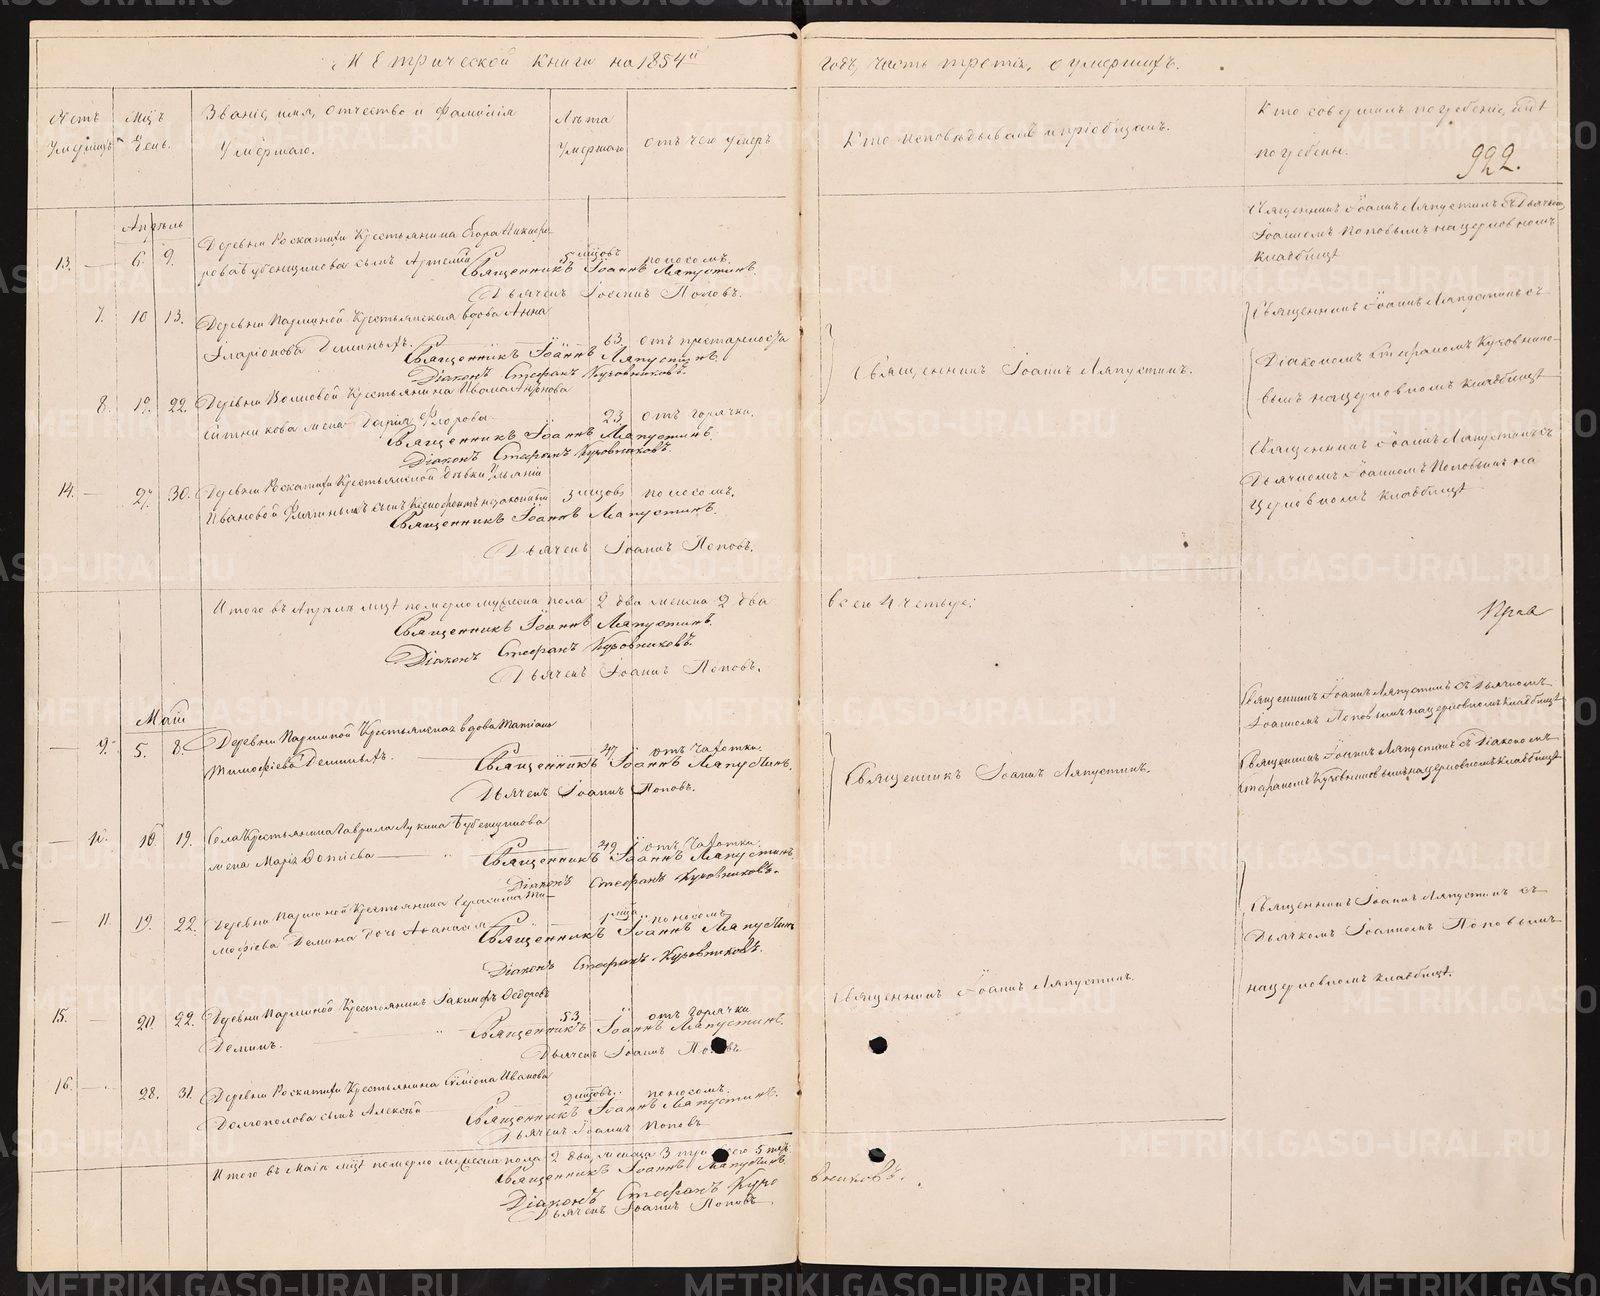 Метрической книги на 1854й
годъ, часть третія, о умершихъ.
Счетъ умершихъ
Мцъ и день.
Званіе, имя, отчество и фамилія умершаго.
Лѣта умершаго
отъ чего умеръ
Кто исповѣдывалъ и пріобщалъ.
Кто совершилъ погребеніе, и гдѣ погребены.
922.
Апрѣль
13. — 6. 9.
Деревни Роскатихи Крестьянина Егора
сынъ Артемій
5 мцовъ
поносомъ.
Священникъ Іоаннъ Ляпустинъ.
Дьячекъ Іоаннъ Поповъ.
Священникъ Іоаннъ Ляпустинъ съ Дьячкомъ
Іоанномъ Поповымъ на церковномъ
кладбищѣ
7. 10 13.
Деревни Паршиной Крестьянская вдова Анна
Иларіонова Деминыхъ.
63. отъ престарелости
Священникъ Іоаннъ Ляпустинъ.
Діаконъ Стефанъ Куровниковъ.
Священникъ Іоаннъ Ляпустинъ.
Священникъ Іоаннъ Ляпустинъ съ
Діакономъ Стефаномъ Куровнико-
вымъ на церковномъ кладбищѣ
8. 19. 22.
Деревни Волковой Крестьянина Ивана
Ситникова жена Дарія Флорова.
23. отъ горячки.
Священникъ Іоаннъ Ляпустинъ.
Діаконъ Стефанъ Куровниковъ.
14. — 27. 30.
Деревни Роскатихи Крестьянской дѣвки
Ивановой сынъ Ксенофонтъ незаконный
3 мцовъ
поносомъ.
Священникъ Іоаннъ Ляпустинъ.
Дьячекъ Іоаннъ Поповъ.
Священникъ Іоаннъ Ляпустинъ съ
Дьячкомъ Іоанномъ Поповымъ на
церковномъ кладбищѣ
Итого въ Апрѣлѣ мцѣ померло мужеска пола 2 два женска 2 два
всего 4 четыре.
Священникъ Іоаннъ Ляпустинъ.
Діаконъ Стефанъ Куровниковъ.
Дьячекъ Іоаннъ Поповъ.
Май
— 9. 5. 8.
Деревни Паршиной Крестьянская вдова
Тимофіева Деминыхъ.
47. отъ чахотки.
Священникъ Іоаннъ Ляпустинъ.
Дьячекъ Іоаннъ Поповъ.
Священникъ Іоаннъ Ляпустинъ.
Священникъ Іоаннъ Ляпустинъ съ Дьячкомъ
Іоанномъ Поповымъ на церковномъ кладбищѣ
— 10. 16. 19.
Села Крестьянина Гаврила Лукина
жена Марія Фотіева
49. отъ чахотки.
Священникъ Іоаннъ Ляпустинъ.
Діаконъ Стефанъ Куровниковъ.
Священникъ Іоаннъ Ляпустинъ съ Діакономъ
Стефаномъ Куровниковымъ на церковномъ кладбищѣ
— 11. 19. 22.
Деревни Паршиной Крестьянина Герасима Ти-
мофіева Демина дочь Афанасія
1 мца
поносомъ
Священникъ Іоаннъ Ляпустинъ
Діаконъ Стефанъ Куровниковъ.
15. — 20. 22.
Деревни Паршиной Крестьянинъ Іакинфъ Федоровъ
Деминъ.
53. отъ горячки
Священникъ Іоаннъ Ляпустинъ.
Дьячекъ Іоаннъ Поповъ
Священникъ Іоаннъ Ляпустинъ.
Священникъ Іоаннъ Ляпустинъ съ
Дьячкомъ Іоанномъ Поповымъ
на церковномъ кладбищѣ.
16. — 28. 31.
Деревни Роскатихи Крестьянина Симіона Иванова
Долгополова сынъ Алексѣй
2 мцовъ.
поносомъ.
Священникъ Іоаннъ Ляпустинъ.
Дьячекъ Іоаннъ Поповъ
Итого въ Маіѣ мцѣ померло мужеска пола 2 два, женска 3 три всего 5 пять
Священникъ Іоаннъ Ляпустинъ.
Діаконъ Стефанъ Куро
вниковъ.
Дьячекъ Іоаннъ Поповъ
METRIKI.GASO-URAL.RU